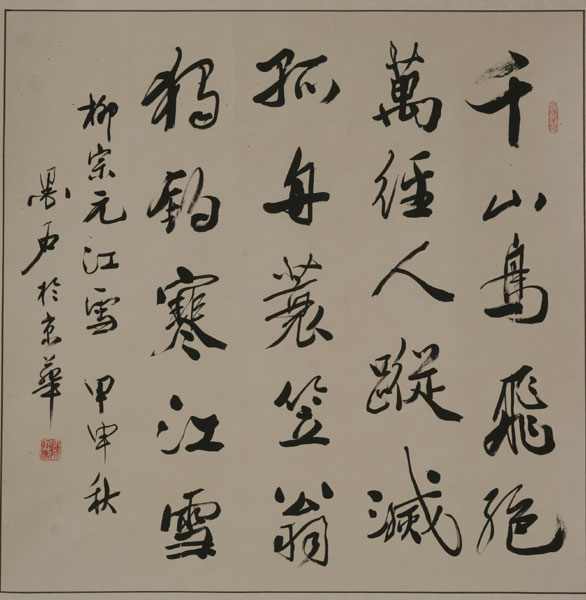 千山鳥飛絕
萬徑人蹤滅
孤舟蓑笠翁
獨釣寒江雪
柳宗元江雪 甲申秋
於京華